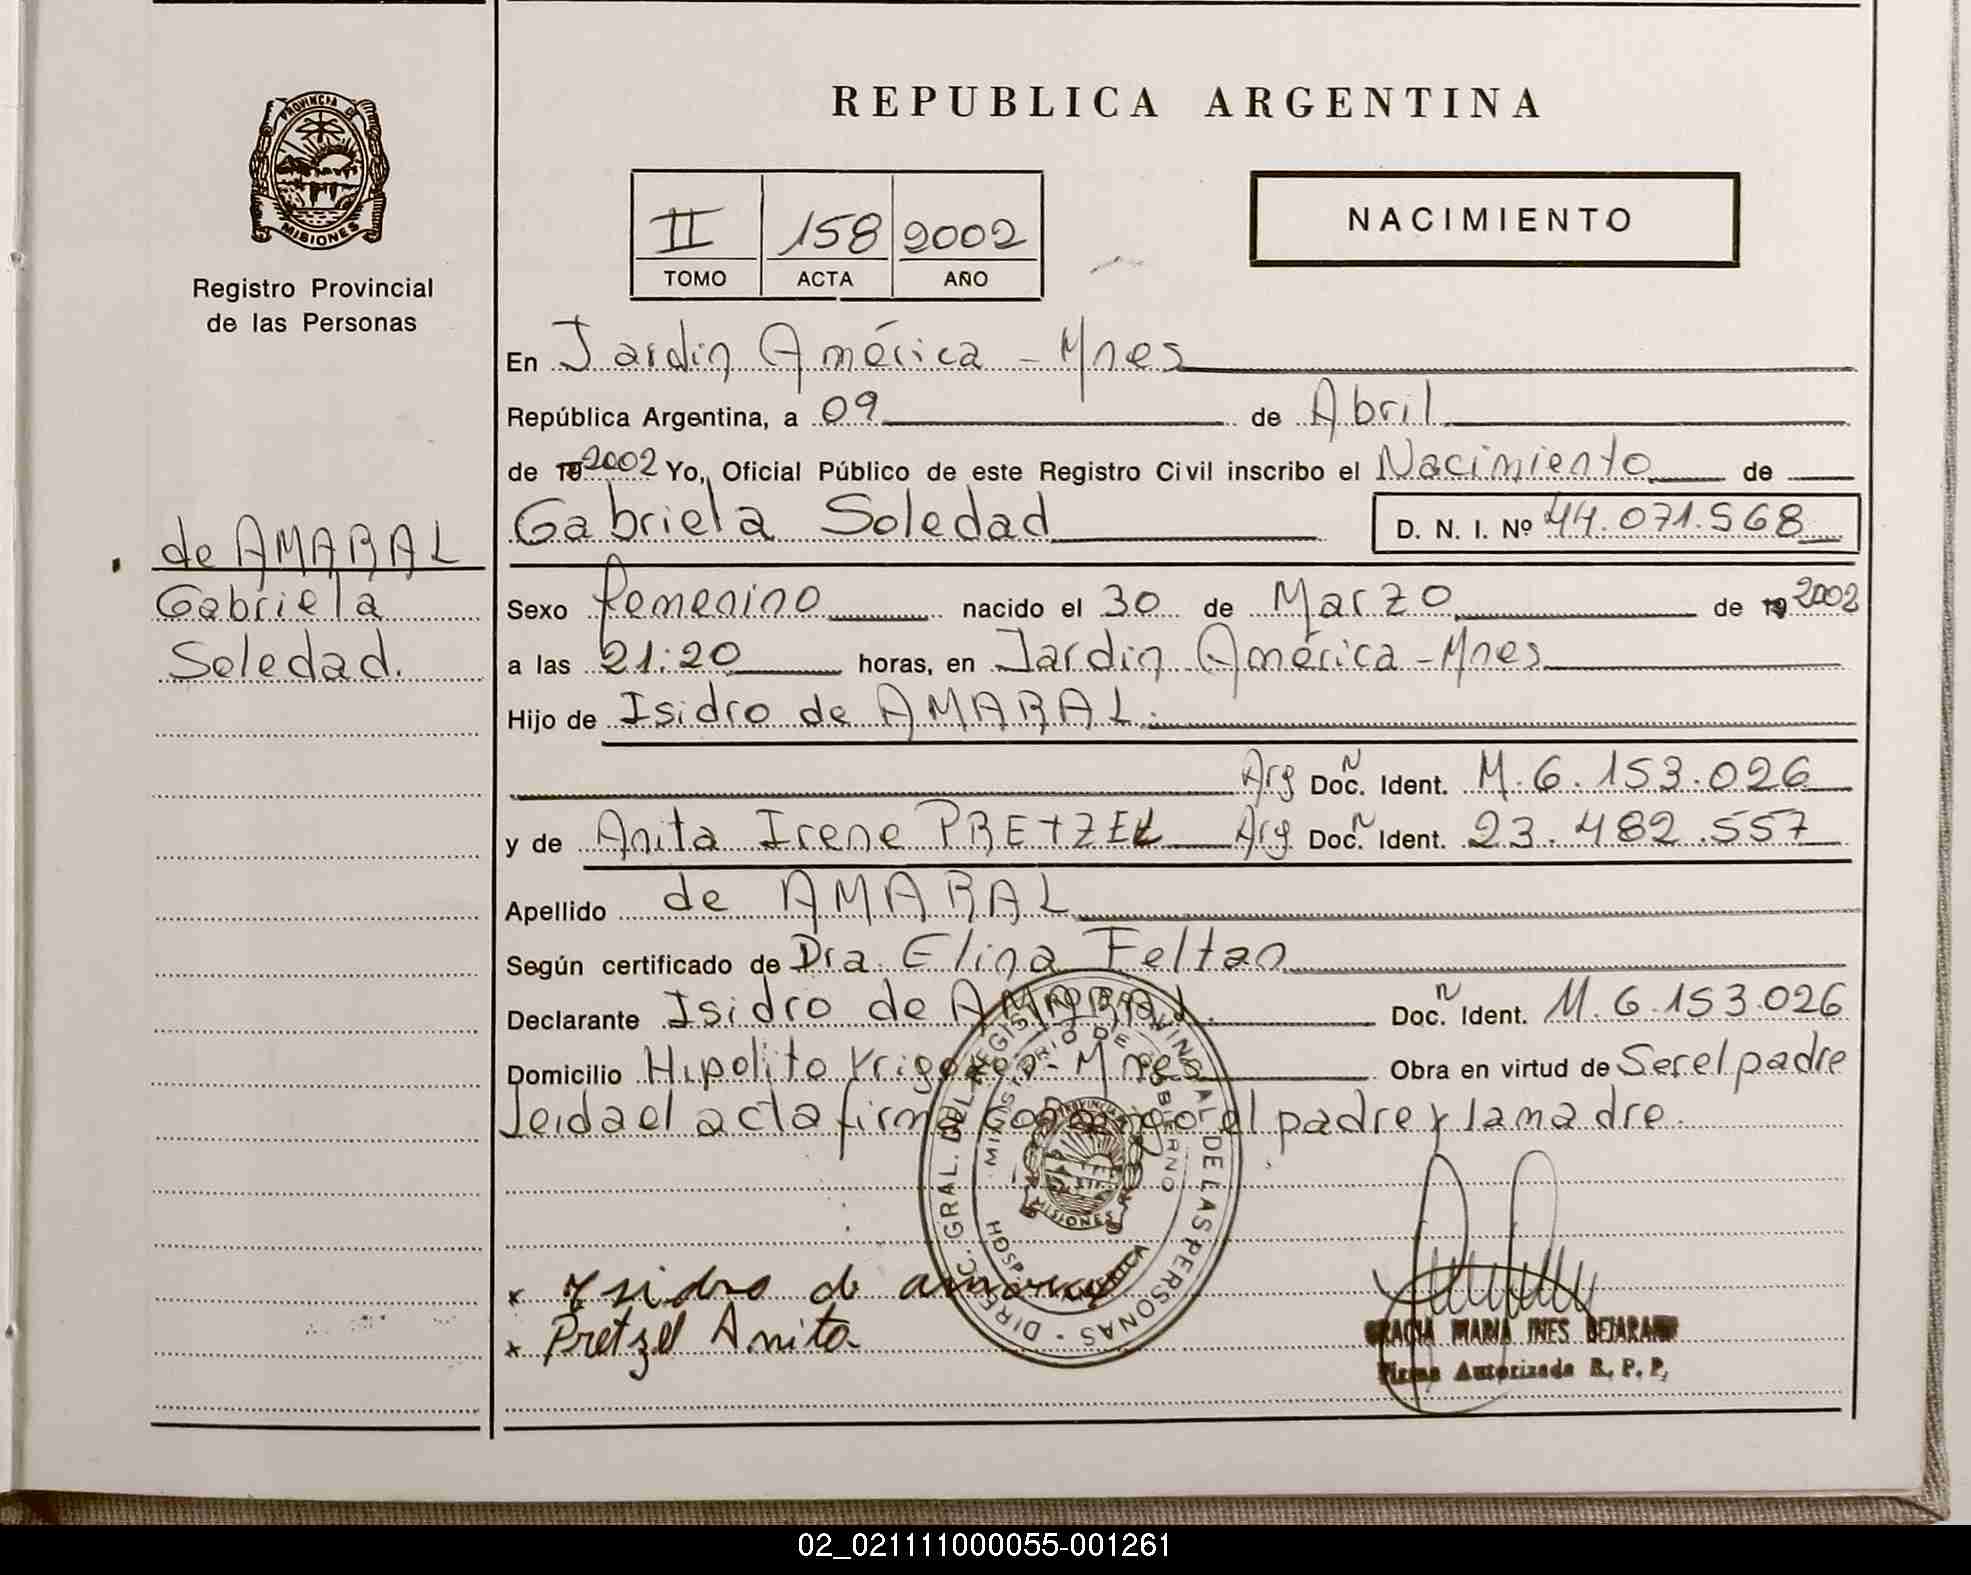 REPUBLICA ARGENTINA
PROVINCIA DE
MISIONES
Registro Provincial
de las Personas
II 158 2002
TOMO ACTA AÑO
NACIMIENTO
de AMARAL
Gabriela
Soledad.
En Jardin América - Mnes
República Argentina, a 09 de Abril
de 19 2002 Yo, Oficial Público de este Registro Civil inscribo el Nacimiento de
Gabriela Soledad D. N. I. Nº 44.071.568
Sexo femenino nacido el 30 de Marzo de 19 2002
a las 21:20 horas, en Jardin América - Mnes
Hijo de Isidro de AMARAL.
Arg Doc. N Ident. M. 6.153.026
y de Anita Irene PRETZEL Arg Doc. N Ident. 23.482.557
Apellido de AMARAL
Según certificado de Dra. Elina Feltan
Declarante Isidro de AMARAL. Doc. N Ident. M. 6.153.026
Domicilio Hipolito Yrigoyen - Mnes Obra en virtud de Ser el padre
leida el acta firman conmigo el padre y la madre.
DIREC. GRAL. DEL REGISTRO PROVINCIAL DE LAS PERSONAS
MINISTERIO DE GOBIERNO
PROVINCIA
MISIONES
HOSP.
x Isidro de amaral
x Pretzel Anita
GRACIA MARIA INES BEJARANO
Firma Autorizada R. P. P.
02_021111000055-001261